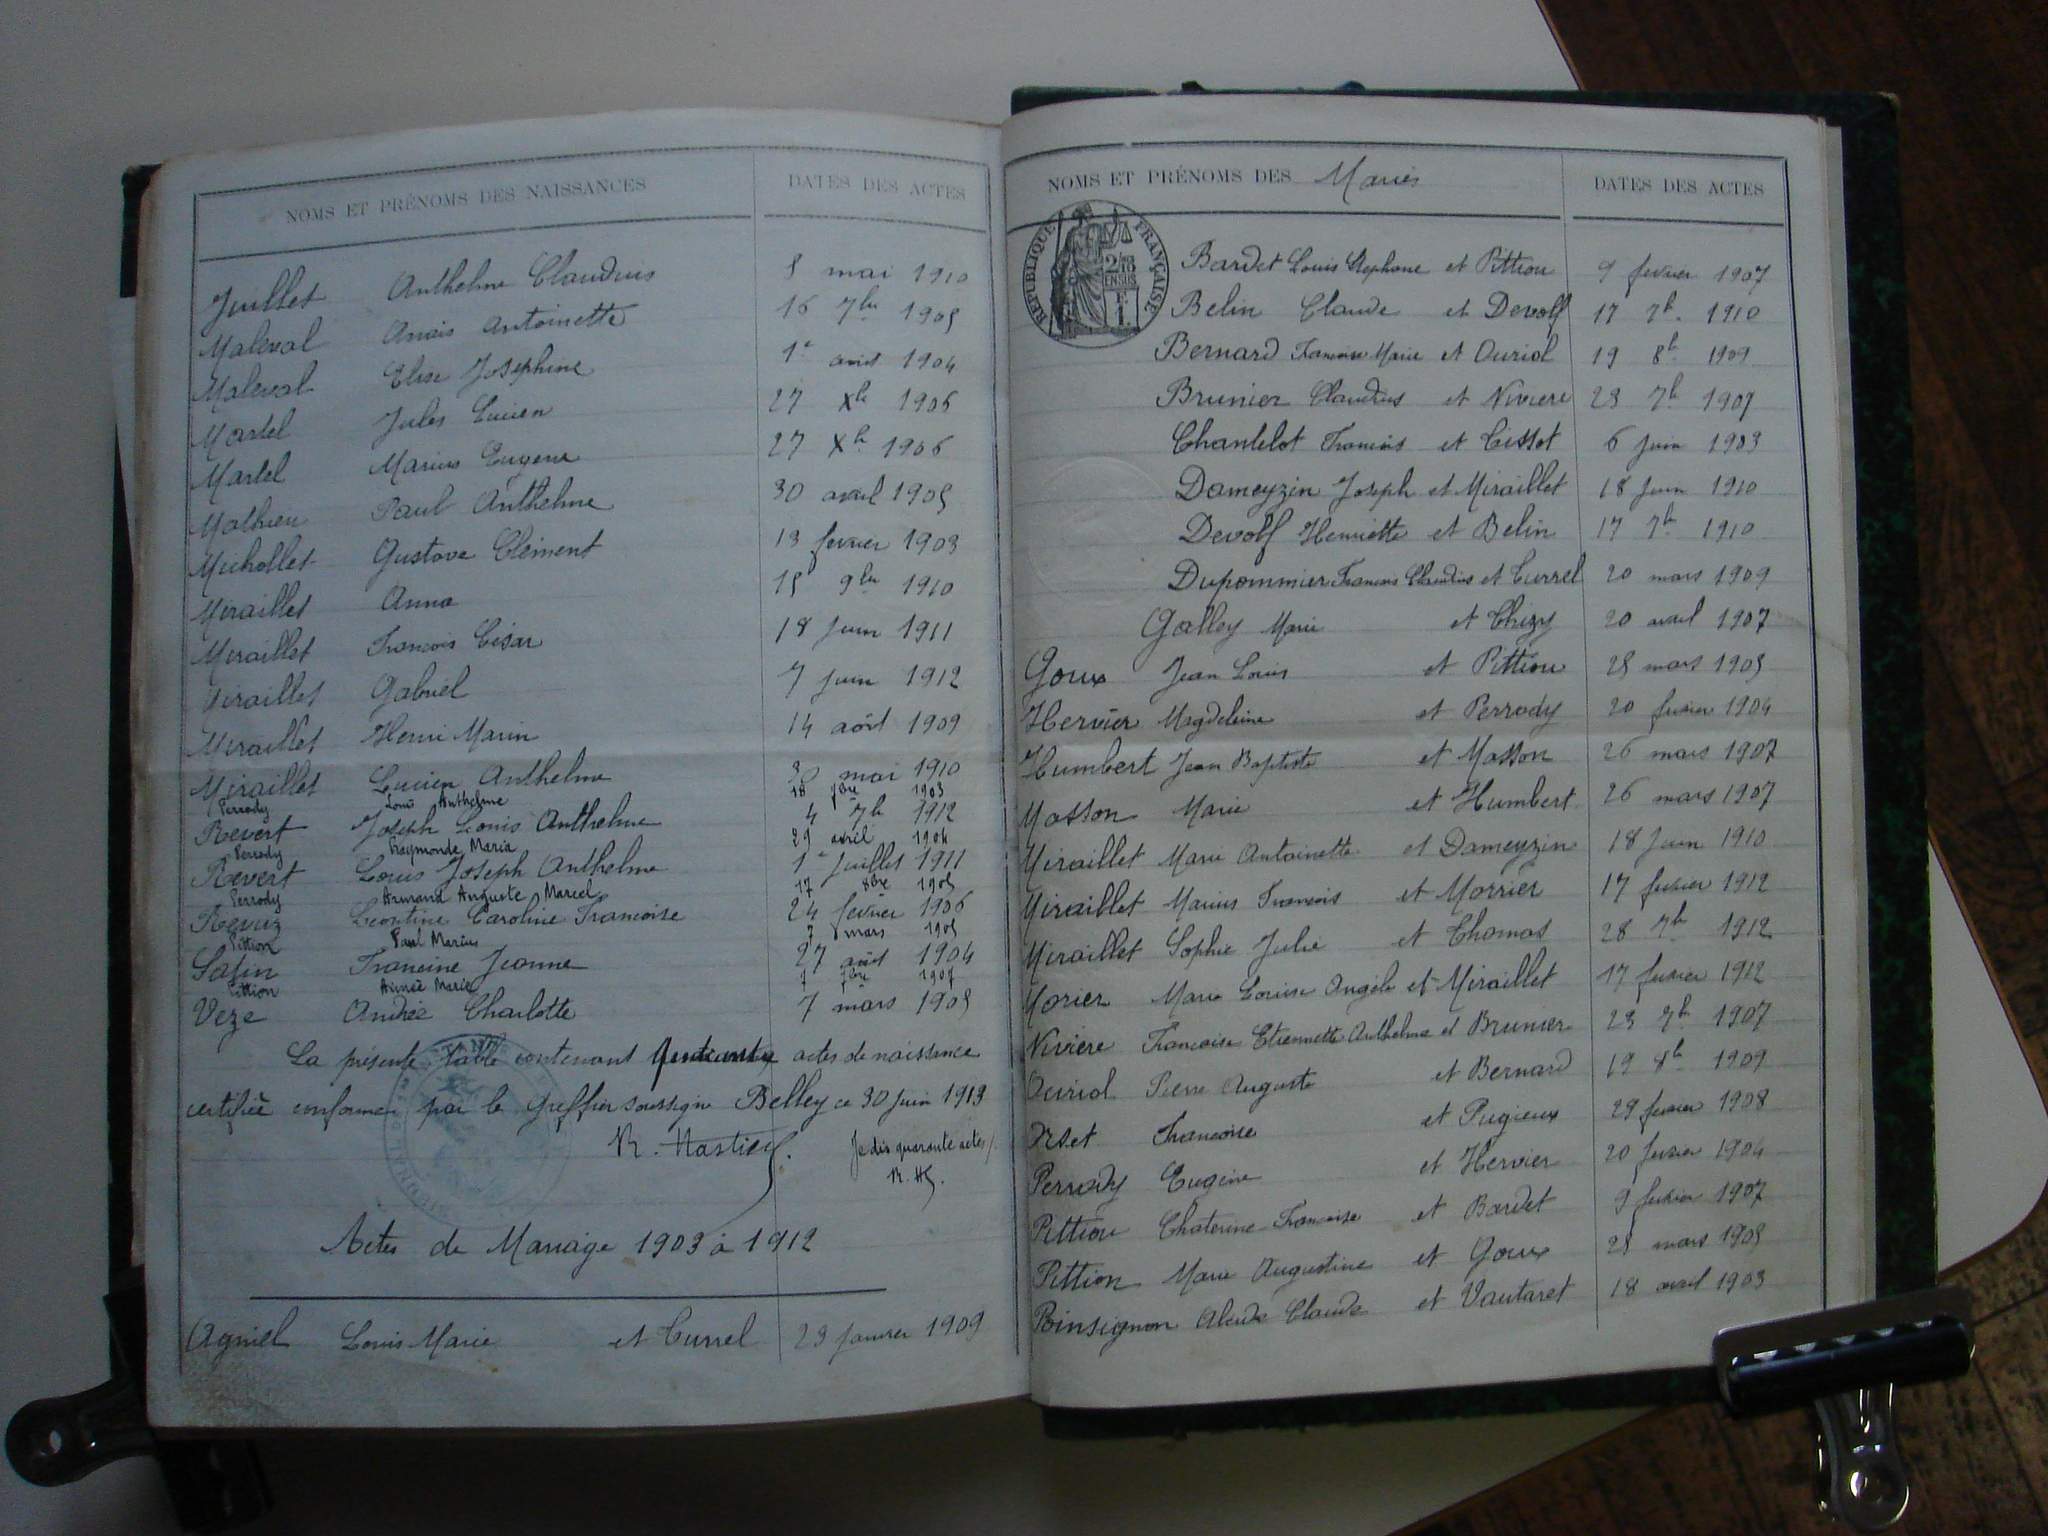 NOMS ET PRÉNOMS DES NAISSANCES DATES DES ACTES
Juillet Anthelme Claudius 8 mai 1910
Maleval Anais Antoinette 16 7bre 1905
Maleval Elise Joséphine 1er août 1904
Martel Jules Lucien 27 Xbr 1906
Martel Marius Eugene 27 Xbr 1906
Mathieu Paul Anthelme 30 avril 1905
Michollet Gustave Clément 13 fevrier 1903
Miraillet Anna 15 9bre 1910
Miraillet Francois César 18 Juin 1911
Miraillet Gabriel 7 Juin 1912
Miraillet Henri Marin 14 août 1909
Miraillet Lucien Anthelme 30 mai 1910
Perrody Louis Anthelme 18 1903
Revert Joseph Louis Anthelme 4 7b 1912
Perrody Raymonde Maria 29 avril 1904
Revert Louis Joseph Anthelme 1er Juillet 1911
Perrody Armand Auguste Marcel 17 8bre 1905
Revuz Léontine Caroline Francoise 24 fevrier 1906
Pittion Paul Marius 7 mars 1905
Safin Francine Jeanne 27 août 1904
Pittion Aimée Marie 7 1907
Veze Andrée Charlotte 7 mars 1905
La présente table contenant actes de naissance
certifiée conforme par le Greffier soussigné Belley ce 30 juin 1913
R. Je dis quarante actes
Actes de Mariage 1903 à 1912
Agniel Louis Marie et Currel 23 Janvier 1909
NOMS ET PRÉNOMS DES Mariés DATES DES ACTES
RÉPUBLIQUE FRANÇAISE
2/10 EN SUS
Bardet Louis Stephane et Pittion 9 fevrier 1907
Belin Claude et Devolf 17 7b 1910
Bernard Francoise Marie et Ouriol 19 8b 1909
Brunier Claudius et Niviere 23 7b 1907
Chantelot Francois et Cissot 6 Juin 1903
Dameyzin Joseph et Miraillet 18 Juin 1910
Devolf Henriette et Belin 17 7b 1910
Dupommier Francois Claudius et Currel 20 mars 1909
Galley Marie et Chizy 20 avril 1907
Goux Jean Louis et Pittion 25 mars 1905
Hervier Magdeleine et Perrody 20 fevrier 1904
Humbert Jean Baptiste et Masson 26 mars 1907
Masson Marie et Humbert 26 mars 1907
Miraillet Marie Antoinette et Dameyzin 18 Juin 1910
Miraillet Marius Francois et Morrier 17 fevrier 1912
Miraillet Sophie Julie et Thomas 28 7b 1912
Morier Marie Louise Angèle et Miraillet 17 fevrier 1912
Niviere Francoise Etiennette Anthelme et Brunier 23 7b 1907
Ouriol Pierre Auguste et Bernard 19 8b 1909
Orset Francoise et Pugieux 29 fevrier 1908
Perrody Eugène et Hervier 20 fevrier 1904
Pittion Chaterine Francoise et Bardet 9 fevrier 1907
Pittion Marie Augustine et Goux 25 mars 1905
Poinsignon Claude et Vautaret 18 avril 1903